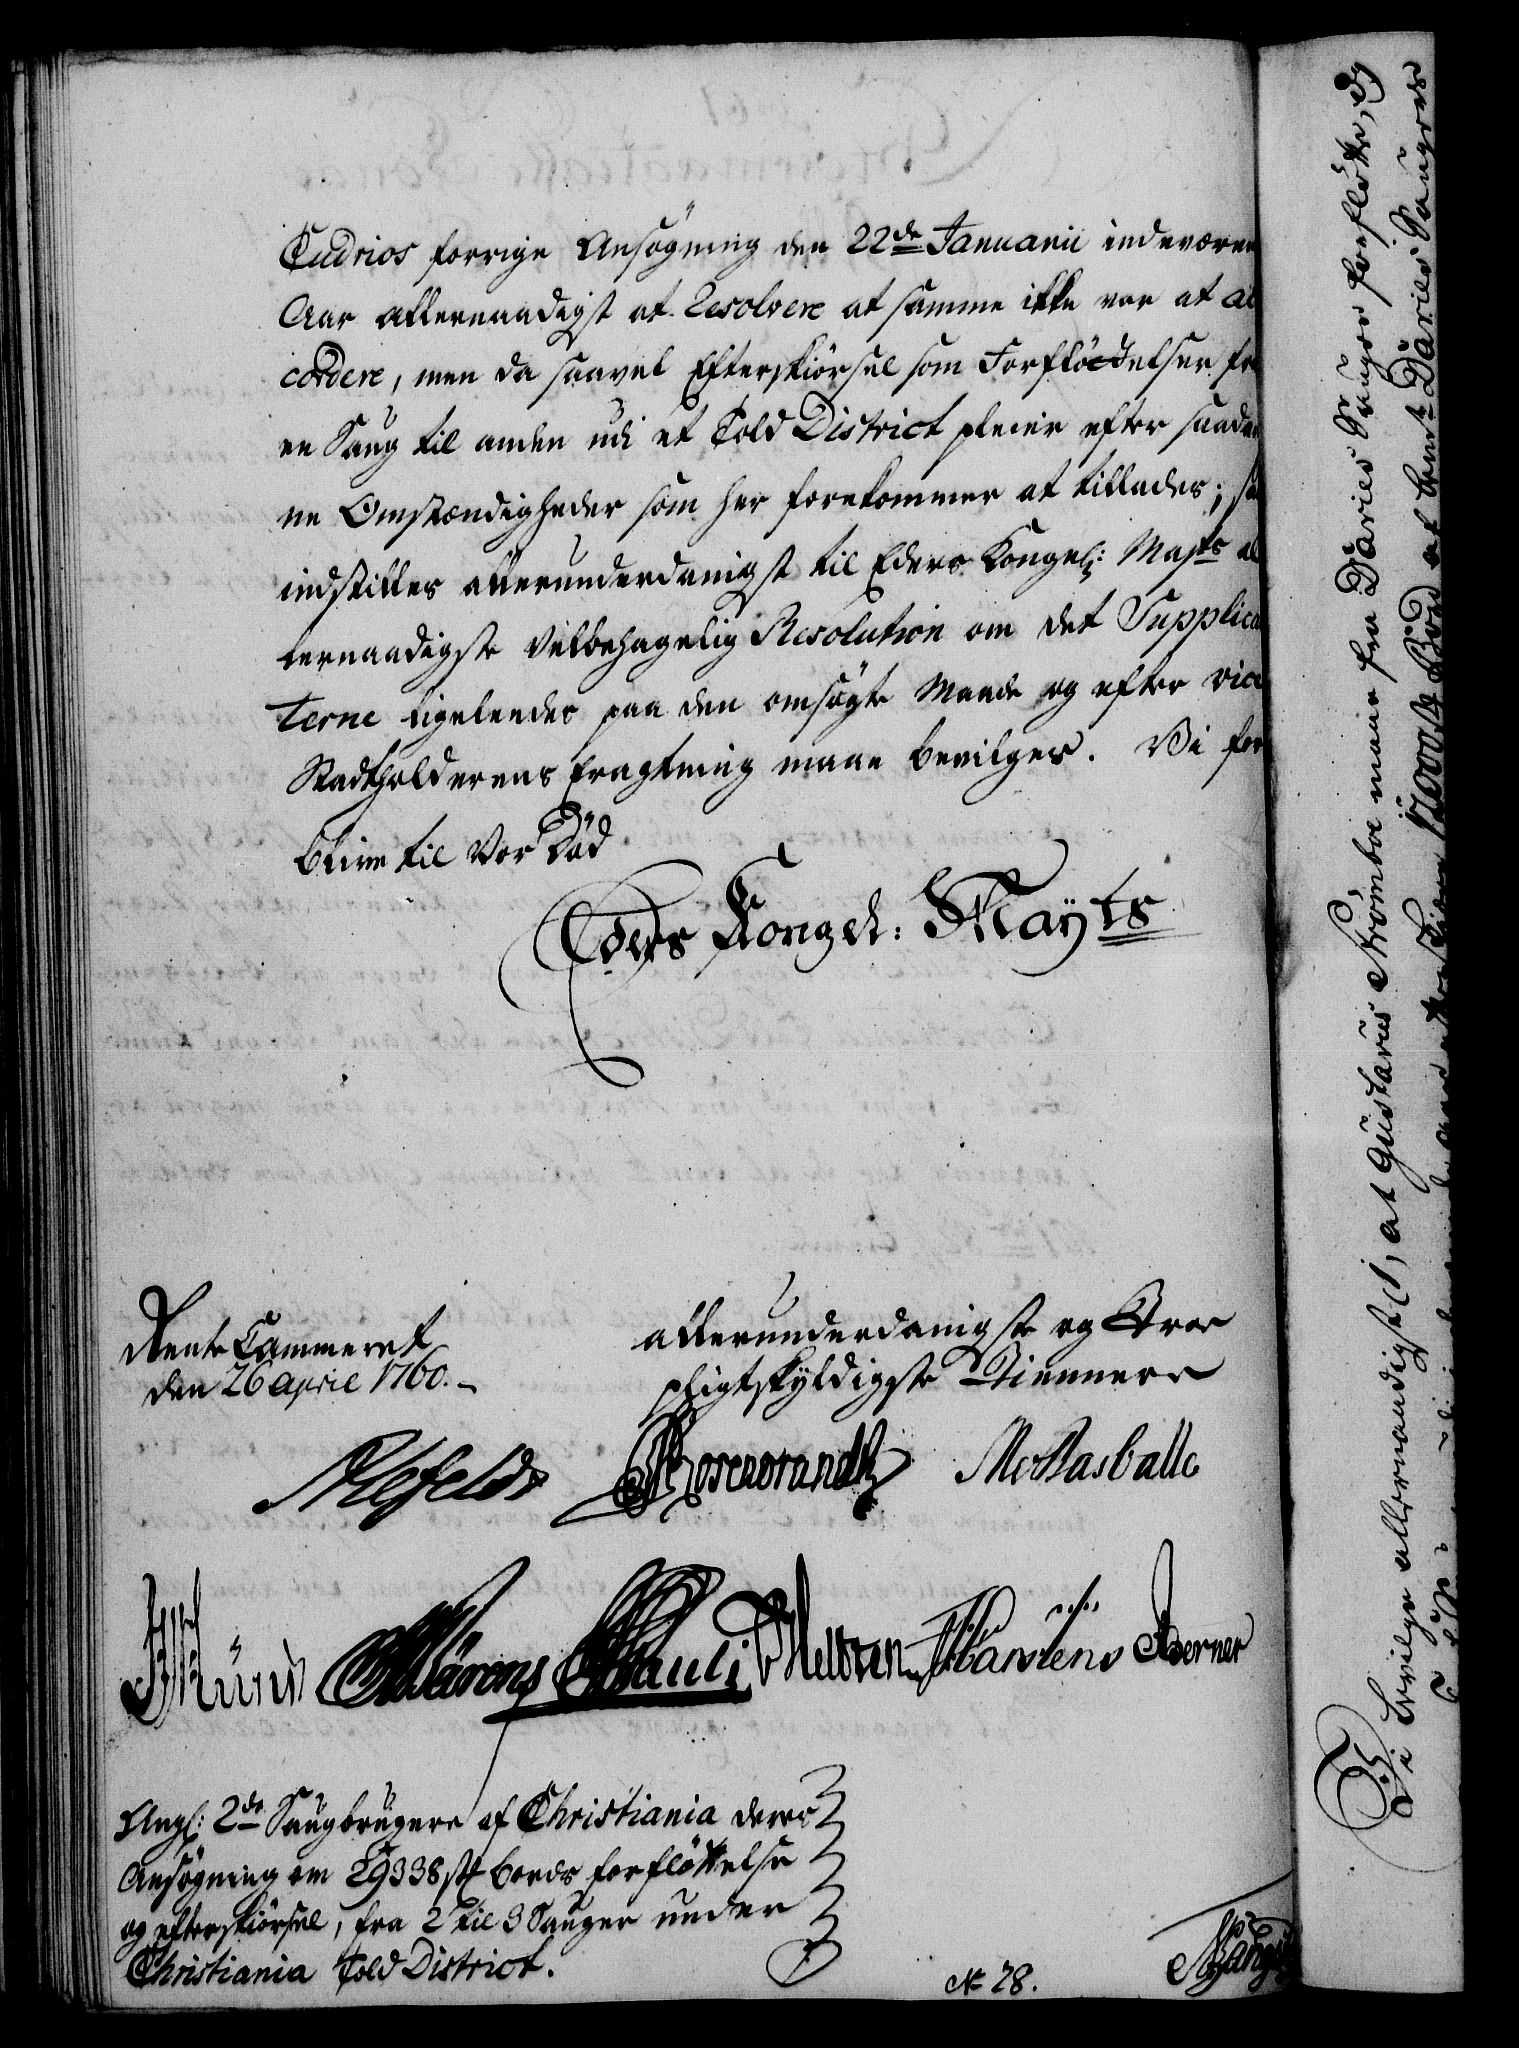 Cudrios forrige Ansøgning den 22de Januarii indeværen
Aar allernaadigst at Resolvere at samme ikke var at ac
cordere, men da saavel Efterskiörsel som Forflödelser fra
en Saug til anden udi et Told District pleier efter saada
ne Omstændigheder som her forekommer at tillades; saa
indstilles allerunderdanigst til Eders Kongel: Majts al
lernaadigste Velbehagelig Resolution om det Supplican
terne ligeledes paa den omsøgte Maade og efter vice
Stadtholderens Eragtning maae bevilges. Vi for
blive til Vor Död
Eders Kongel: Mayts
Rente Cammeret
den 26 April 1760.
allerunderdanigste og Troe
pligtskyldigste Tiennere
Ahlefeldt Rosenbrandtz
Pauli Martens Berner
Angl: 2de Saugbrugere af Christiania deres
Ansøgning om 29338 st Bords forfløttelse
og efterskiörsel, fra 2 til 3 Sauger under
Christiania Told District.
No 28.
Vi bevilge allernaadigst, at Gustavus Strömboe maae fra Däries Sauger forflötte, og